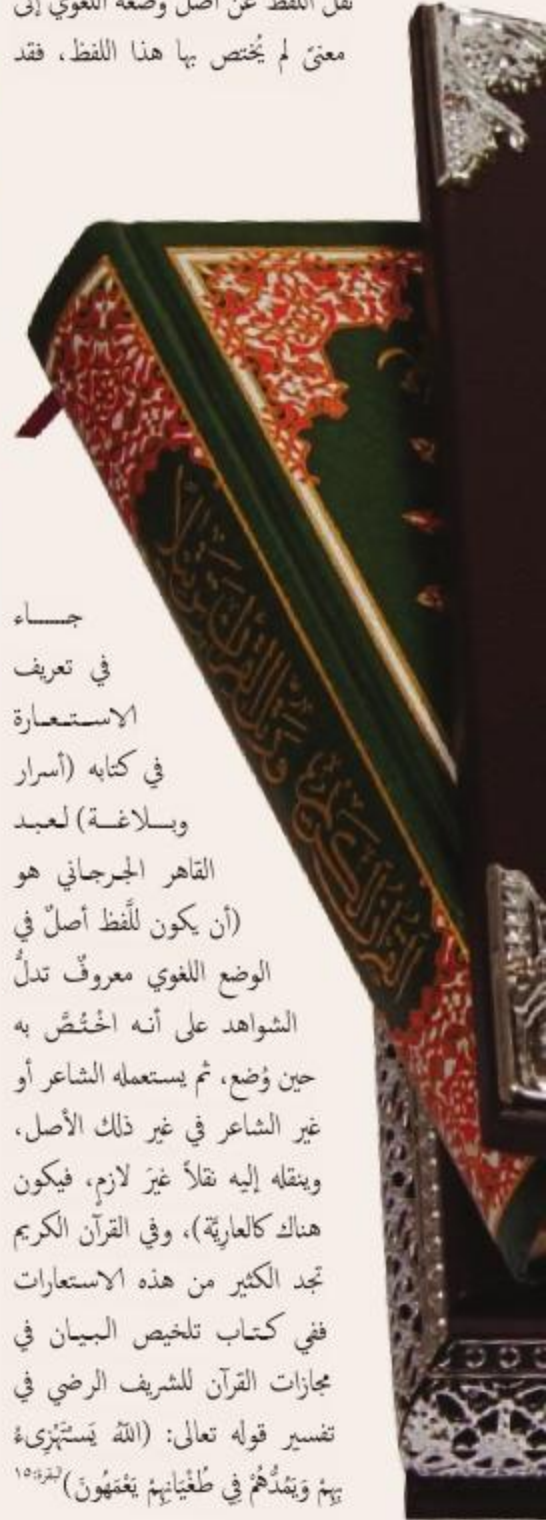 نقل اللفظ عن أصل وضعه اللغوي إلى
معنىً لم يُختص بها هذا اللفظ، فقد
جــــاء
في تعريف
الاستعارة
في كتابه (أسرار
وبلاغة) لعبد
القاهر الجرجاني هو
(أن يكون للَّفظ أصلٌ في
الوضع اللغوي معروفٌ تدلُّ
الشواهد على أنه اخْتُصَّ به
حين وُضع، ثم يستعمله الشاعر أو
غير الشاعر في غير ذلك الأصل،
وينقله إليه نقلاً غيرَ لازمٍ، فيكون
هناك كالعاريّة)، وفي القرآن الكريم
تجد الكثير من هذه الاستعارات
ففي كتاب تلخيص البيان في
مجازات القرآن للشريف الرضي في
تفسير قوله تعالى: (اللهُ يَسْتَهْزِىءُ
بِهِمْ وَيَمُدُّهُمْ فِي طُغْيَانِهِمْ يَعْمَهُونَ)البقرة:١٥
ورتل القرآن ترتيلا
القرآن الكريم